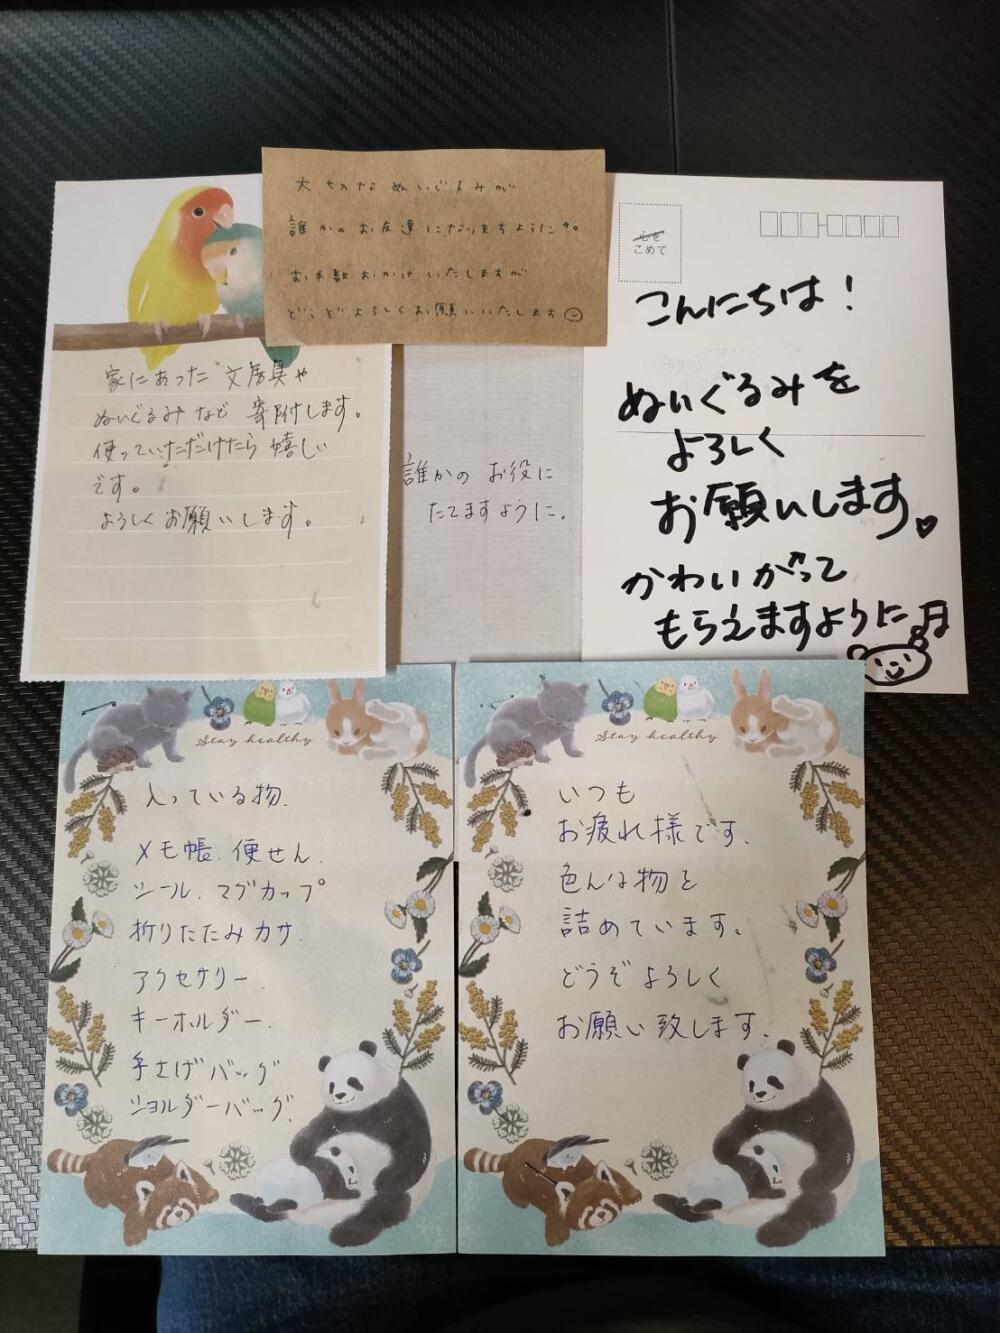 大切なぬいぐるみが
誰かのお友達になりますように
お手数おかけいたしますが
どうぞよろしくお願いいたします
家にあった文房具や
ぬいぐるみなど寄附します。
使っていただけたら嬉しい
です。
よろしくお願いします。
誰かのお役に
たてますように。
心を
こめて
こんにちは!
ぬいぐるみを
よろしく
お願いします♡
かわいがって
もらえますように♬
Stay healthy
入っている物.
メモ帳.便せん.
シール.マグカップ
折りたたみカサ.
アクセサリー.
キーホルダー.
手さげバッグ
ショルダーバッグ.
Stay healthy
いつも
お疲れ様です.
色んな物を
詰めています.
どうぞよろしく
お願い致します.